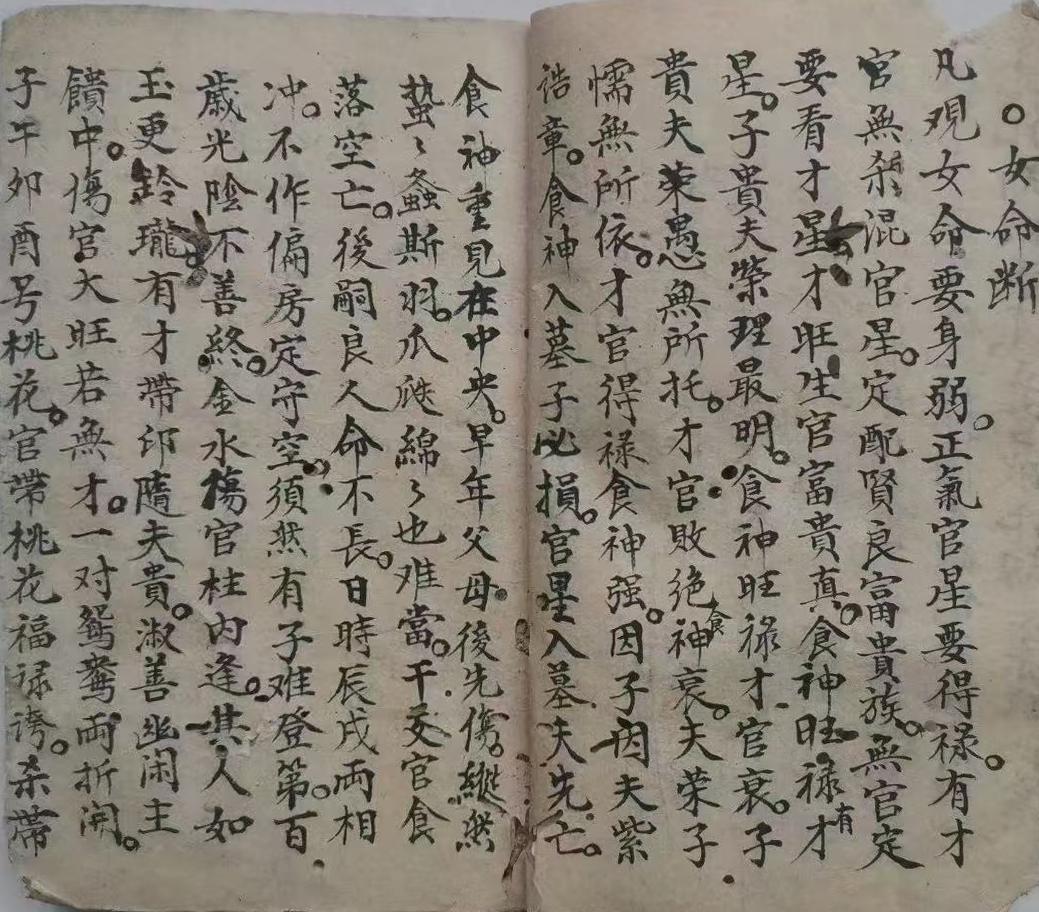 ○女命断
凡观女命要身弱。正氣官星要得禄。有才
官無杀混官星。定配賢良富貴族。無官定
要看才星才旺生官富貴真。食神旺禄有才
星。子貴夫榮理最明。食神旺禄才官衰。子
貴夫荣愚無所托。才官敗绝食神衰。夫荣子
懦無所依。才官得禄食神强。因子因夫紫
诰章。食神入墓子必損。官星入墓夫先亡。
食神重見在中央。早年父母後先傷。縱然
蟄〻螽斯羽。瓜瓞綿〻也难當。干支官食
落空亡。後嗣良人命不長。日時辰戌兩相
冲。不作偏房定守空。須然有子难登第。百
歲光陰不善終。金水傷官柱内逢。其人如
玉更鈴瓏有才帶印隨夫貴。淑善幽闲主
饋中。傷官大旺若無才。一对鴛鴦兩折開。
子午卯酉号桃花。官帶桃花福禄誇。杀帶